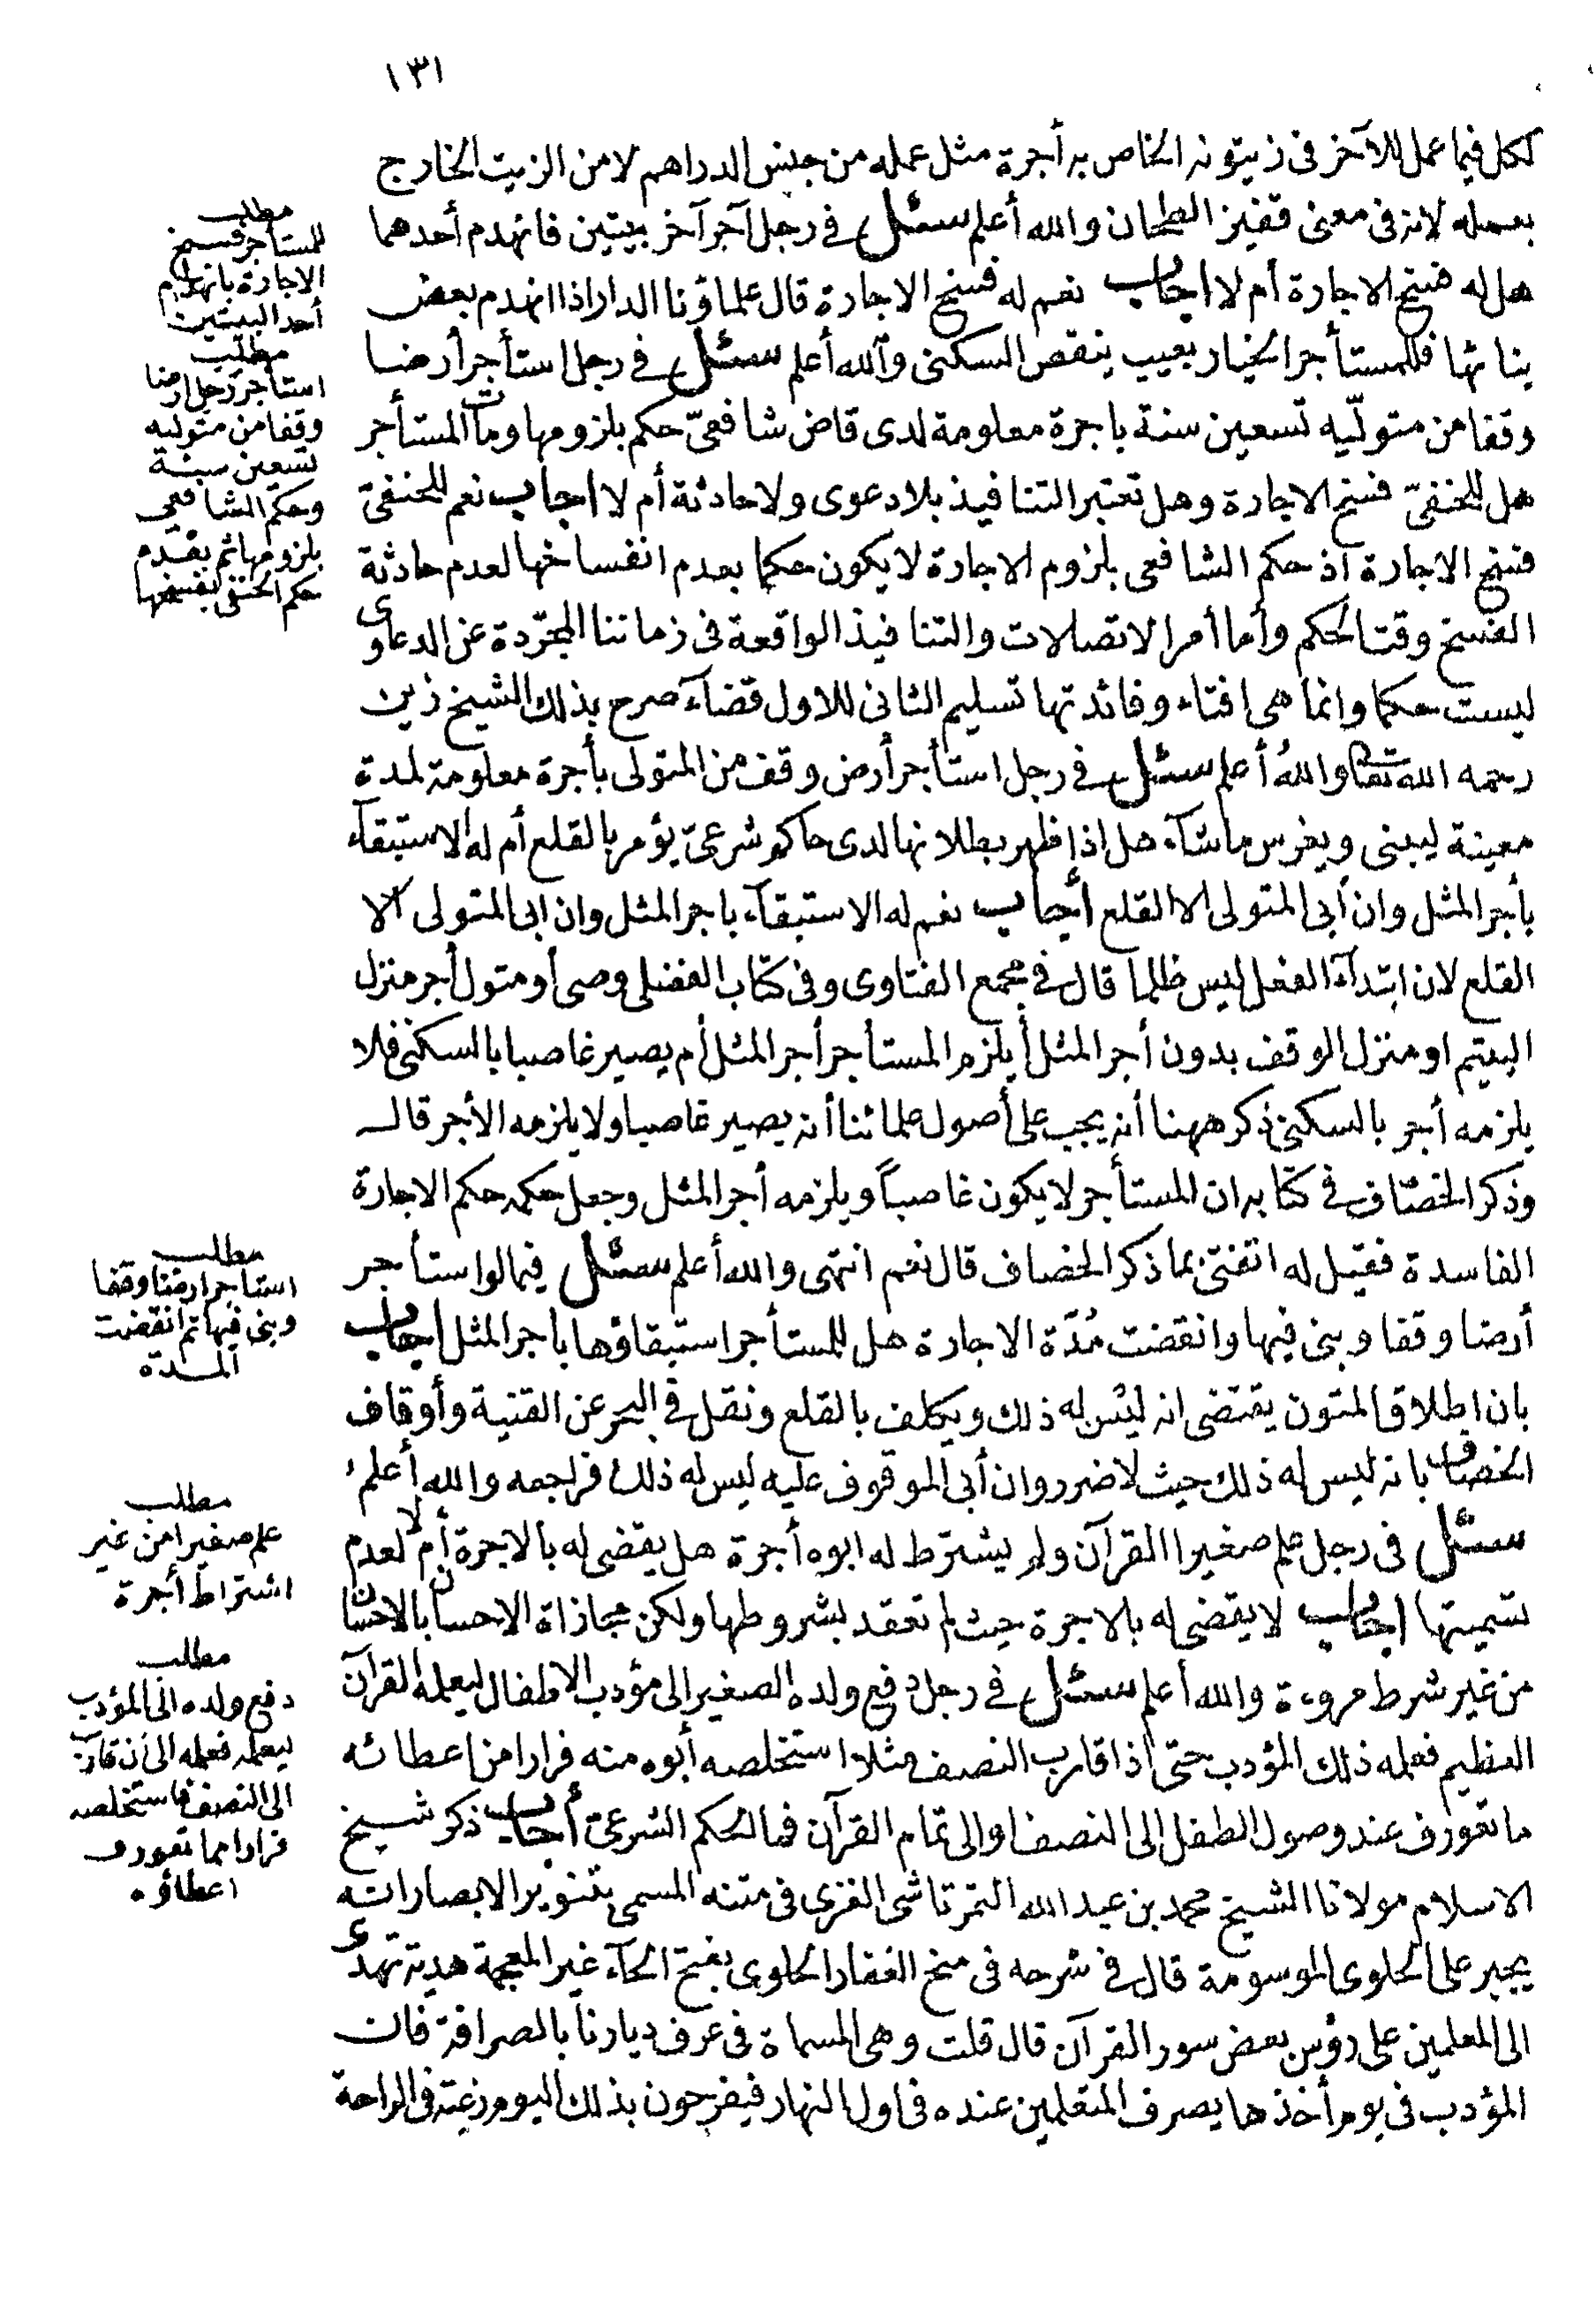 ١٣١
لكل فيما عمل للآخر فى زيتونه الخاص به أجرة مثل عمله من جنس الدراهم لا من الزيت الخارج
بعمله لانه فى معنى قفيز الطحان والله أعلم سئل فى رجل آجر آخر بيتين فانهدم أحدهما
هل له فسخ الاجارة أم لا اجاب نعم له فسخ الاجارة قال علماؤنا الدار اذا انهدم بعض
بنائها فللمستأجر الخيار بعيب ينقص السكنى والله أعلم سئل فى رجل استأجر أرضا
وقفا من متوليه تسعين سنة باجرة معلومة لدى قاض شافعىّ حكم بلزومها ومات المستأجر
هل للحنفىّ فسخ الاجارة وهل تعتبر التنافيذ بلا دعوى ولا حادثة أم لا اجاب نعم للحنفىّ
فسخ الاجارة اذ حكم الشافعى بلزوم الاجارة لا يكون حكما بعدم انفساخها لعدم حادثة
الفسخ وقت الحكم وأما أمر الاتصالات والتنافيذ الواقعة فى زماننا المجرّدة عن الدعاوى
ليست حكما وانما هى افتاء وفائدتها تسليم الثانى للاول قضآء صرح بذلك الشيخ زين
رحمه الله تعالى والله أعلم سئل فى رجل استأجر أرض وقف من المتولى بأجرة معلومة لمدة
معينة ليبنى ويغرس ماشآء هل اذا ظهر بطلانها لدى حاكم شرعىّ يؤمر بالقلع أم له الاستبقآء
بأجر المثل وان أبى المتولى الا القلع أجاب نعم له الاستبقآء باجر المثل وان ابى المتولى الا
القلع لان ابتدآء الفعل ليس ظلما قال فى مجمع الفتاوى وفى كتاب الفضلى وصى أو متول أجر منزل
اليتيم او منزل الوقف بدون أجر المثل أيلزم المستأجر أجر المثل أم يصير غاصبا بالسكنى فلا
يلزمه أجر بالسكنى ذكر ههنا أنه يجب على أصول علمائنا أنه يصير غاصبا ولا يلزمه الأجر قال
وذكر الخصّاف فى كتابه ان المستأجر لا يكون غاصباً ويلزمه أجر المثل وجعل حكمه حكم الاجارة
الفاسدة فقيل له اتفتى بما ذكر الخصاف قال نعم انتهى والله أعلم سئل فيما لو استأجر
أرضا وقفا وبنى فيها وانقضت مُدّة الاجارة هل للمستأجر استبقاؤها باجر المثل اجاب
بان اطلاق المتون يقتضى انه ليْس له ذلك ويكلف بالقلع ونقل فى البحر عن القنية وأوقاف
الخصاف بانه ليس له ذلك حيث لا ضرر وان أبى الموقوف عليه ليس له ذلك فراجعه والله أعلم
سئل فى رجل علم صغيرا القرآن ولم يشترط له ابوه أجرة هل يقضى له بالاجرة أم لا لعدم
تسميتها اجاب لا يقضى له بالاجرة حيث لم تعقد بشروطها ولكن مجازاة الاحسان بالاحسان
من غير شرط مروءة والله أعلم سئل فى رجل دفع ولده الصغير الى مؤدب الاطفال ليعلمه القرآن
العظيم فعلمه ذلك المؤدب حتى اذا قارب النصف مثلا استخلصه أبوه منه فرارا من اعطائه
ما تعورف عند وصول الطفل الى النصف او الى تمام القرآن فما الحكم الشرعىّ أجاب ذكر شيخ
الاسلام مولانا الشيخ محمد بن عبد الله التمرتاشى الغزى فى متنه المسمى بتنوير الابصار انه
يجبر على الحلوى الموسومة قال فى شرحه فى منح الغفار الحلوى بفتح الحآء غير المعجمة هدية تهدى
الى المعلمين على رؤس بعض سور القرآن قال قلت وهى المسماة فى عرف ديارنا بالصرافة فان
المؤدب فى يوم أخذها يصرف المتعلمين عنده فى اول النهار فيفرحون بذلك اليوم رغبة فى الراحة
مطلب
للمستأجر فسخ
الاجارة بانهدام
أحد البيتين
مطلب
استأجر رجل ارضا
وقفا من متوليه
تسعين سنة
وحكم الشافعى
بلزومها ثم يقدم
حكم الحنفى بفسخها
مطلب
استأجر ارضا وقفا
وبنى فيها ثم انقضت
المدة
مطلب
علم صغيرا من غير
اشتراط أجرة
مطلب
دفع ولده الى المؤدب
ليعلمه فعلمه الى أن قارب
الى النصف فاستخلصه
فرارا مما تعورف
اعطاؤه